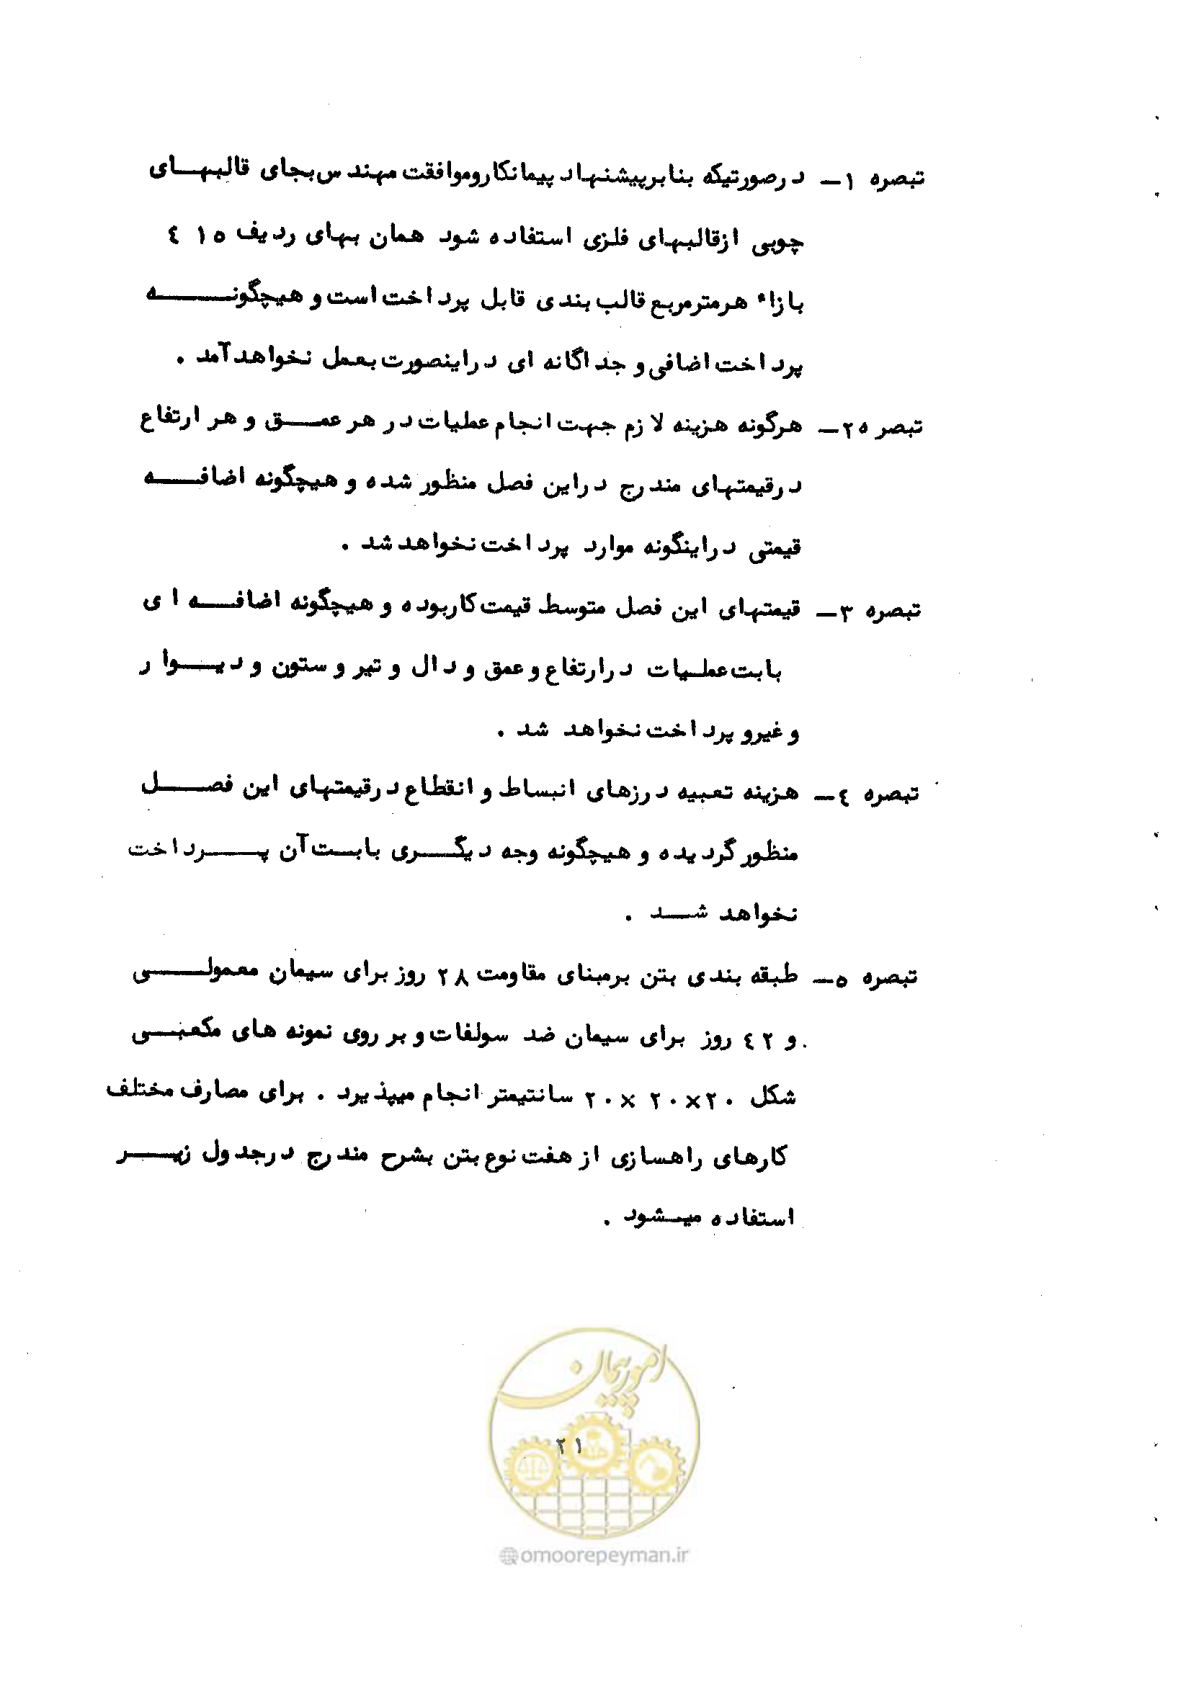 تبصره ۱ـ درصورتیکه بنابرپیشنهاد پیمانکاروموافقت مهندس بجای قالبهـای
چوبی ازقالبهای فلزی استفاده شود همان بهای ردیف ۴۱۵
بازاء هرمترمربع قالب بندی قابل پرداخت است و هیچگونـــه
پرداخت اضافی و جداگانه ای دراینصورت بعمل نخواهدآمد .
تبصره ۲ـ هرگونه هزینه لازم جهت انجام عملیات در هر عمــق و هر ارتفاع
درقیمتهای مندرج دراین فصل منظور شده و هیچگونه اضافــه
قیمتی دراینگونه موارد پرداخت نخواهدشد .
تبصره ۳ـ قیمتهای این فصل متوسط قیمت کاربوده و هیچگونه اضافــه ای
بابت عملیات درارتفاع و عمق و دال و تیر و ستون و دیــوار
و غیرو پرداخت نخواهد شد .
تبصره ۴ـ هزینه تعبیه درزهای انبساط و انقطاع درقیمتهای این فصــل
منظورگردیده و هیچگونه وجه دیگــری بابــت آن پـــرداخت
نخواهد شــد .
تبصره ۵ـ طبقه بندی بتن برمبنای مقاومت ۲۸ روز برای سیمان معمولـــی
و ۴۲ روز برای سیمان ضد سولفات و بر روی نمونه های مکعبــی
شکل ۲۰×۲۰×۲۰ سانتیمتر انجام میپذیرد . برای مصارف مختلف
کارهای راهسازی از هفت نوع بتن بشرح مندرج درجدول زیــر
استفاده میــشود .
امور پیمان
۲۱
@omoorepeyman.ir